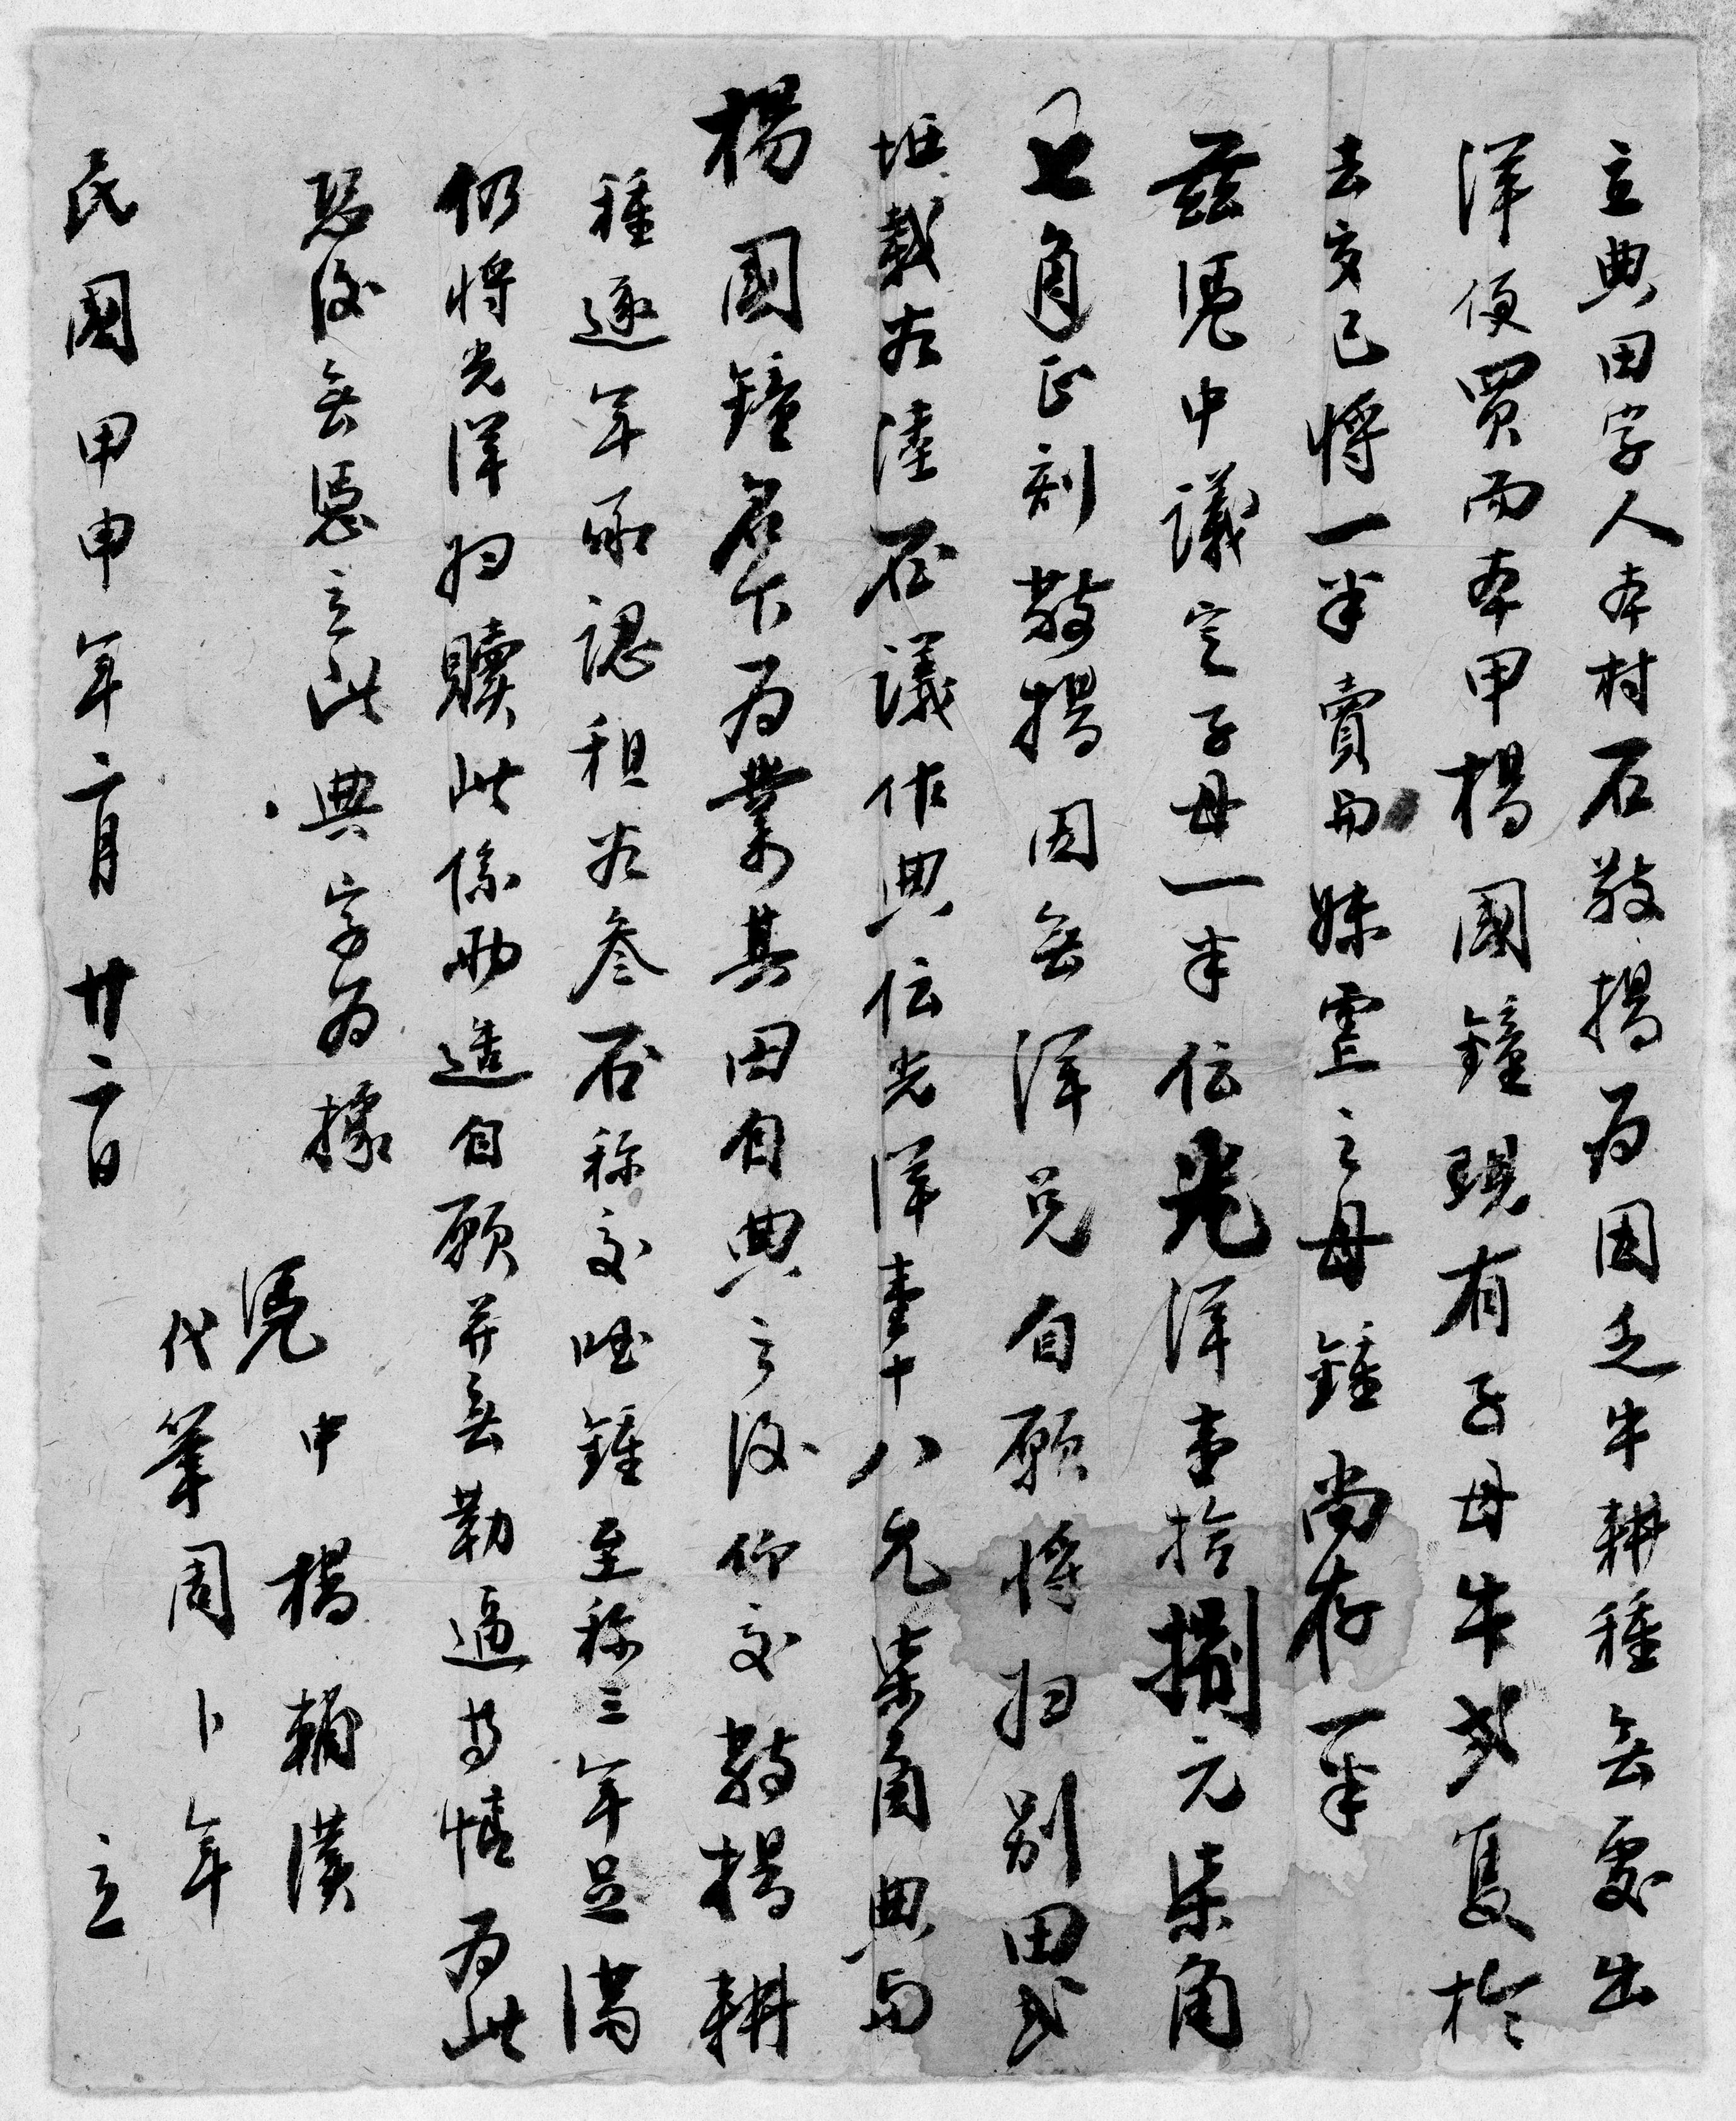 立典田字人本村石敬揚为因乏牛耕種無處出
洋便買而本甲楊國鐘現有子母牛弍隻於
去歲已將一半賣与妹靈之母鍾尚存一半
茲憑中議定子母一半估光洋壹拾捌元柒角
七角正刻敬揚因無洋兑自願將扫别田弍
坵載谷陸石議作典估光洋壹十八元柒角典与
楊國鐘名下为業其田自典之後仰交敬揚耕
種逐年承認租谷叁石称交囯鍾至称三年足满
仍将光洋扫贖此係兩造自願并無勒逼等情为此
恐後無憑立此典字为據
憑中楊輔漢
代筆周卜年
民國甲申年二月廿二日 立